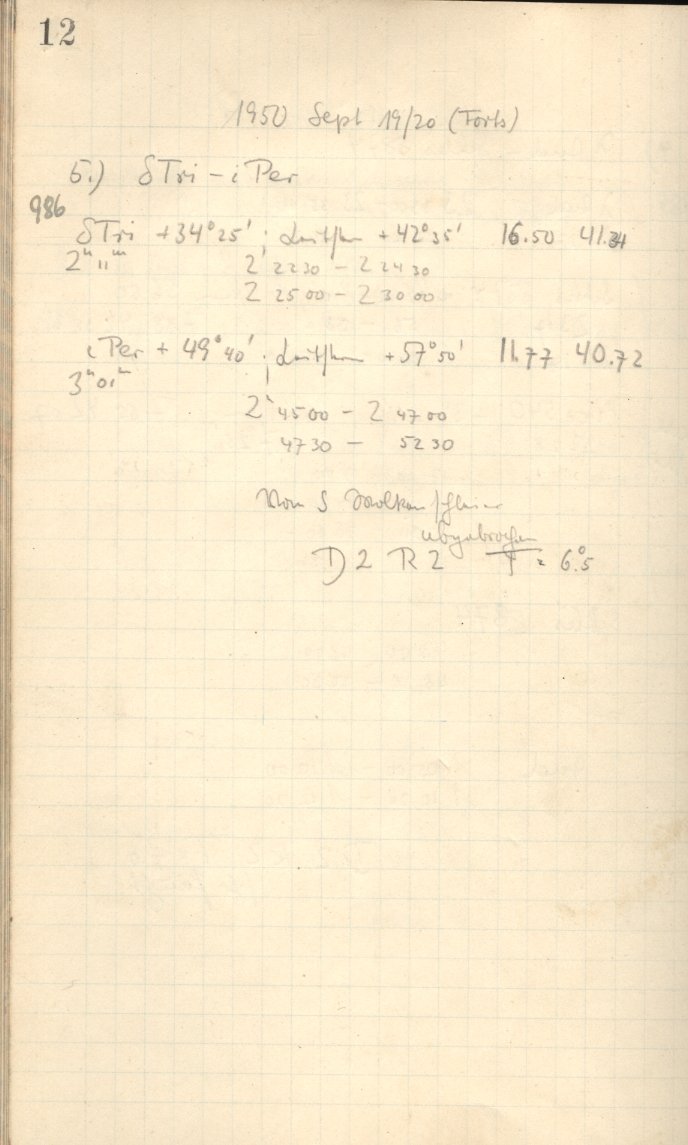 12
1950 Sept 19/20 (Forts)
5.) δTri – i Per
986
δTri +34°25' ; Leitstern +42°35' 16.50 41.34
2ʰ11ᵐ 2ʰ 22 30 – 2 24 30
2 25 00 – 2 30 00
i Per + 49°40' ; Leitstern +57°50' 11.77 40.72
3ʰ01ᵐ
2ʰ 45 00 – 2 47 00
47 30 – 52 30
Von S Wolkenschleier
abgebrochen
D 2 R 2 = 6°.5